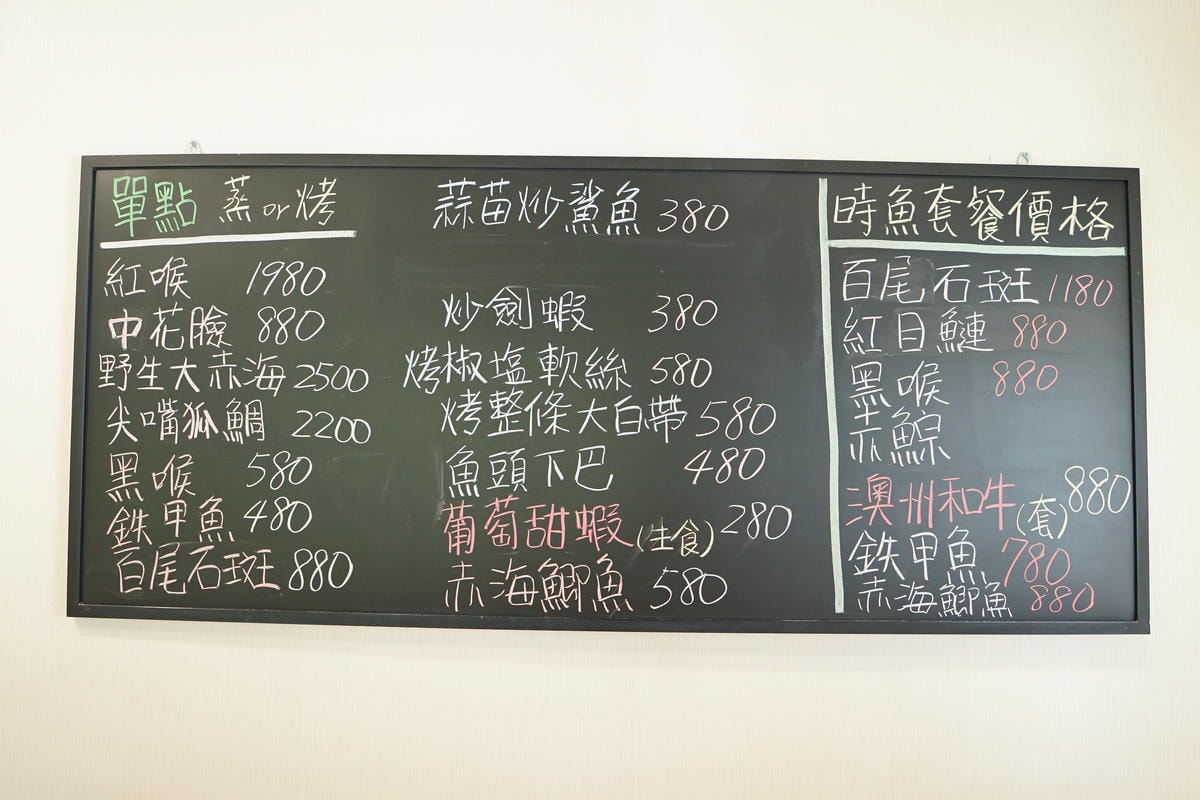 單點 蒸 or 烤
紅喉 1980
中花臉 880
野生大赤海 2500
尖嘴狐鯛 2200
黑喉 580
鉄甲魚 480
百尾石斑 880
蒜苗炒鯊魚 380
炒劍蝦 380
烤椒塩軟絲 580
烤整條大白帶 580
魚頭下巴 480
葡萄甜蝦(生食) 280
赤海鯽魚 580
時魚套餐價格
百尾石斑 1180
紅目鰱 880
黑喉 880
赤鯮
澳州和牛(套) 880
鉄甲魚 780
赤海鯽魚 880